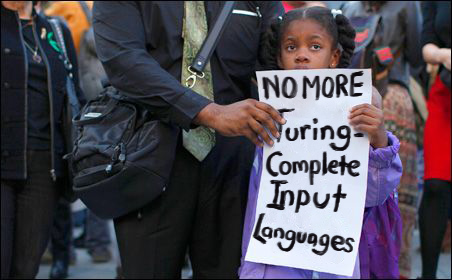 NO MORE
Turing-
Complete
Input
Languages